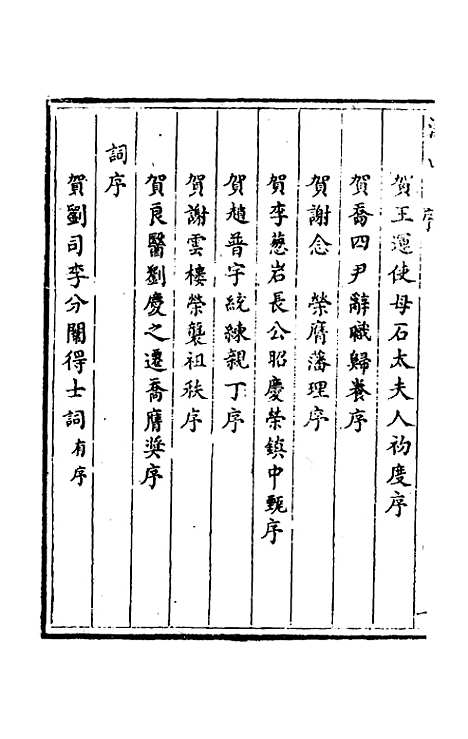 賀王運使母石太夫人初度序
賀喬四尹辭職歸養序
賀謝念 榮膺藩理序
賀李葱岩長公昭慶榮鎮中甄序
賀趙普宇統練親丁序
賀謝雲樓榮襲祖秩序
賀良醫劉慶之遷喬膺奖序
詞序
賀劉司李分闈得士詞有序